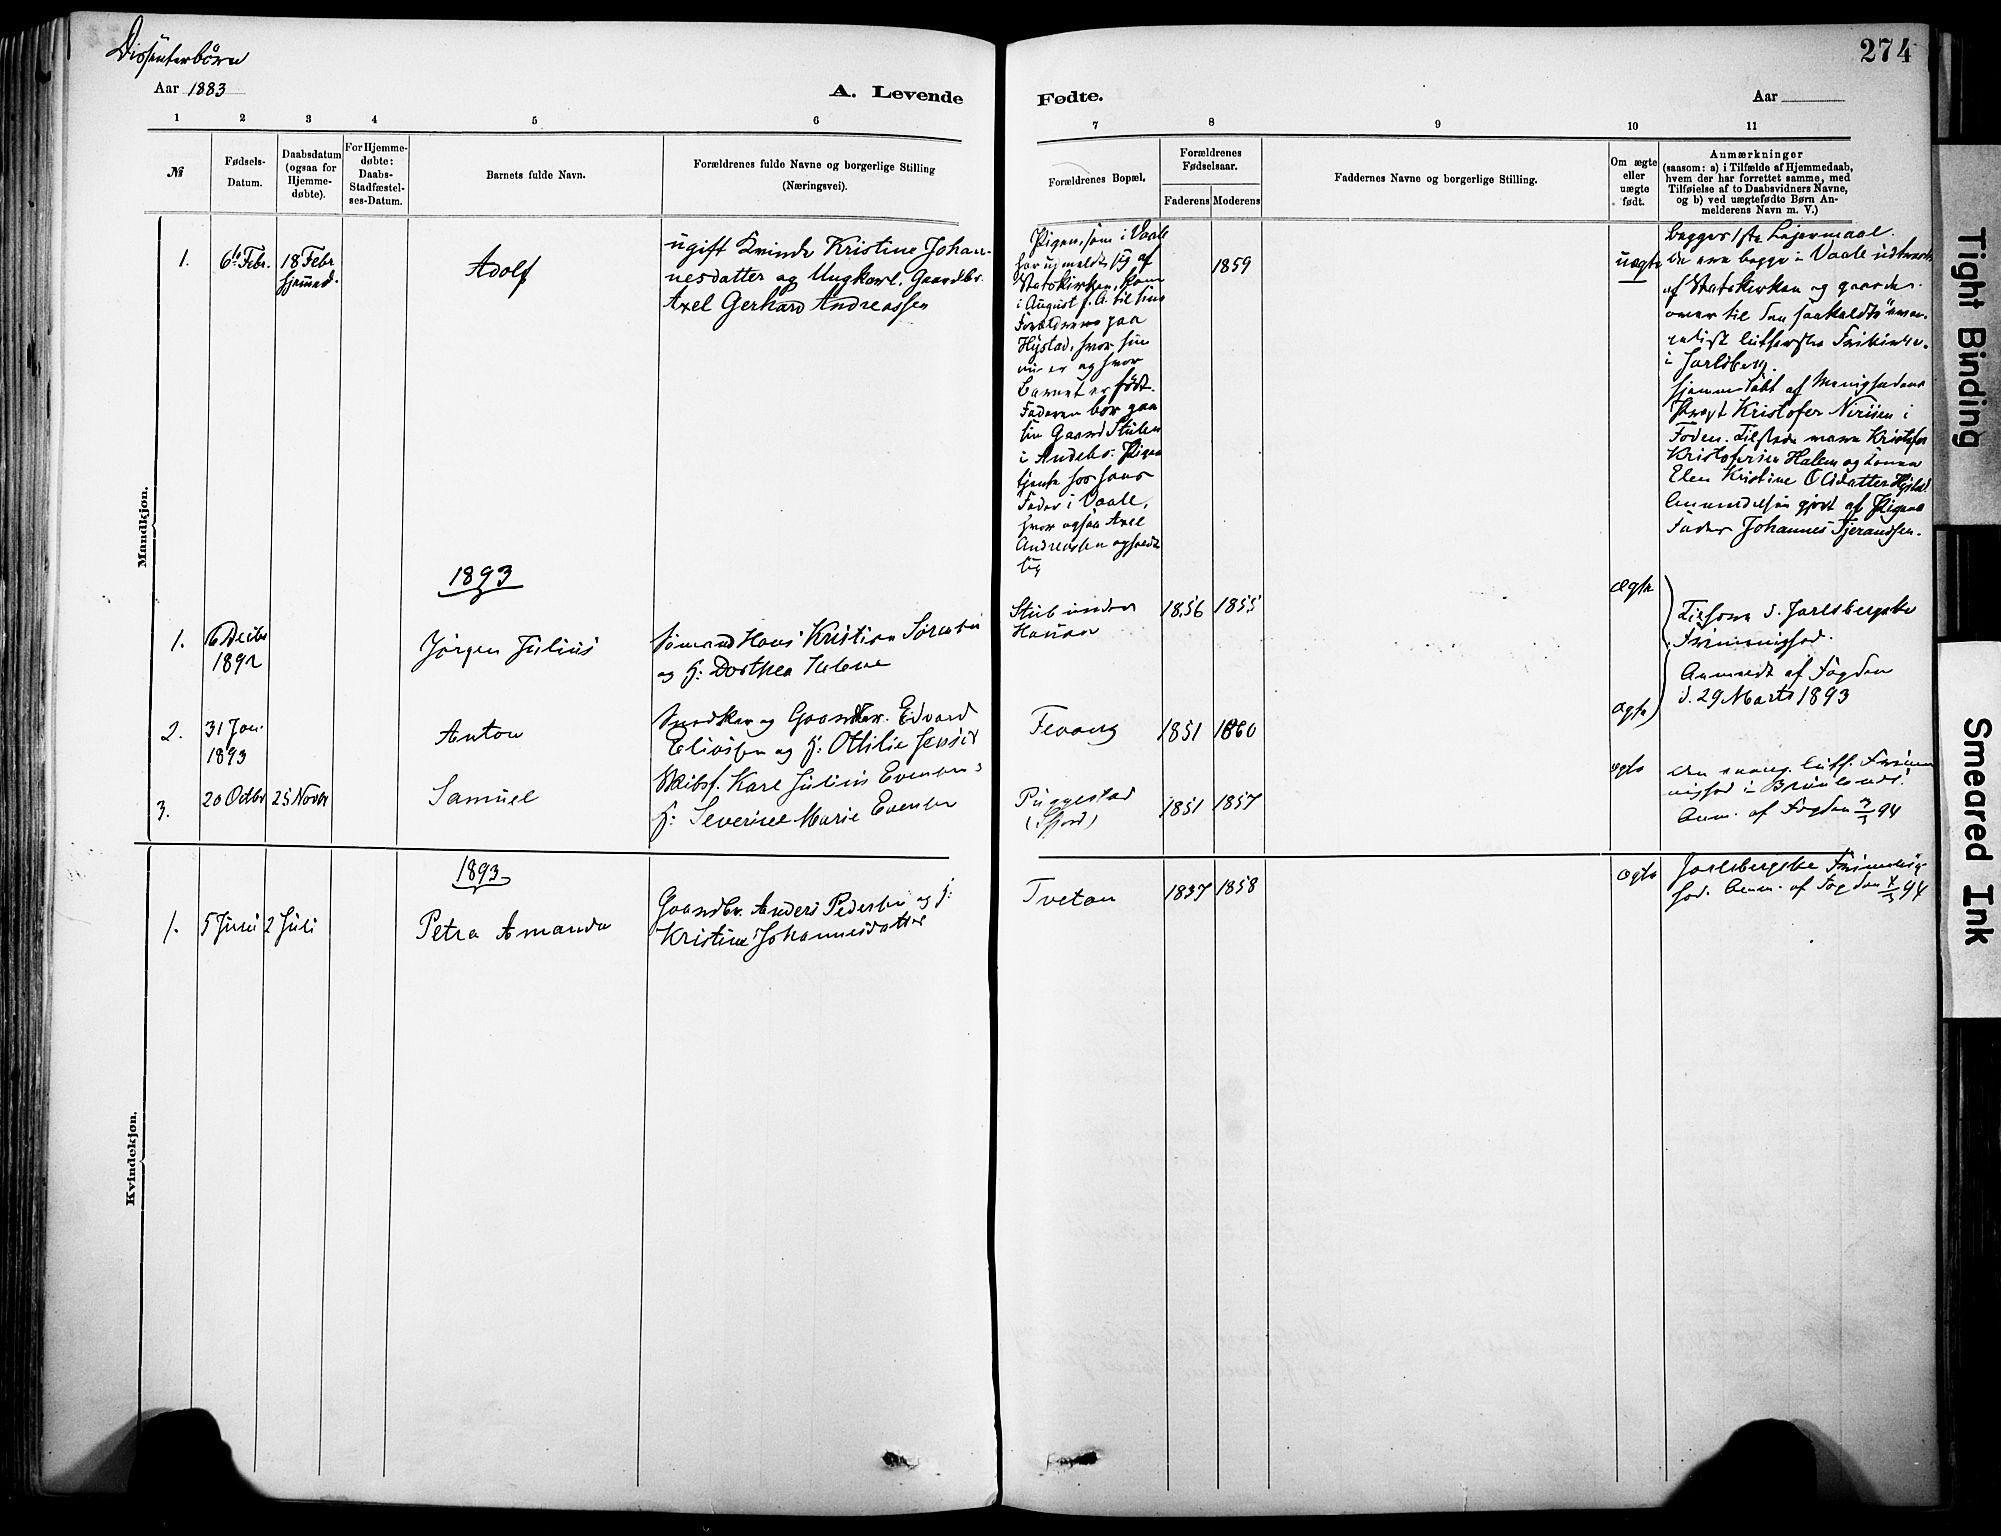 Dissenterbørn
274
Aar 1883
A. Levende
Fødte.
Aar
1
2
3
4
5
6
7
8
9
10
11
№
Fødsels-
Datum.
Daabsdatum
(ogsaa for
Hjemme-
døbte).
For Hjemme-
døbte:
Daabs-
Stadfæstel-
ses-Datum.
Barnets fulde Navn.
Forældrenes fulde Navne og borgerlige Stilling
(Næringsvei).
Forældrenes Bopæl.
Forældrenes
Fødselsaar.
Faderens
Moderens
Faddernes Navne og borgerlige Stilling.
Om ægte
eller
uægte
født.
Anmærkninger
(saasom: a) i Tilfælde af Hjemmedaab,
hvem der har forrettet samme, med
Tilføielse af to Daabsvidners Navne,
og b) ved uægtefødte Børn An-
melderens Navn m. V.)
Mandkjøn.
1.
6te Febr.
18 Febr
hjemmed.
Adolf
ugift Kvinde Kristine Johan-
nesdatter og Ungkarl, Gaardbr.
Axel Gerhard Andreassen
Pigen, som i Vaale
har udmeldt sig af
Statskirken, kom
i August f. A. til sine
Forældrene paa
Hystad, hvor hun
nu er og hvor
Barnet er født.
Faderen bor paa
sin Gaard Stulen
i Andebo. Pigen
tjente hos hans
Fader i Vaale,
hvor ogsaa Axel
Andreassen opholdt
sig
1859
uægte
Begges 1ste Leiermaal.
De ere begge i Vaale udtraadt
af Statskirken og gaaede
over til den saakaldte "evan-
gelisk lutherske Frikirke"
i Jarlsberg.
Hjemmedøbt af Menighedens
Præst Kristofer Nirisen i
Foden. Tilstede vare Kristofer
Kristofersen Halem og Konen
Elen Kristine Olsdatter Hystad.
Anmeldelsen gjort af Pigens
Fader Johannes Tjerandsen.
1893
1.
6 Decbr
1892
Jørgen Julius
Sømand Hans Kristian Sørensen
og H: Dorthea Helene
Stub under
Hasaas
1856
1855
ægte
Tilhører d. Jarlsbergske
Frimenighed.
Anmeldt af Fogden
d. 29 Marts 1893
2.
31 Jan.
1893
Anton
Snedker og Gaardbr. Edvard
Eliassen og H: Ottilie Jensdr
Fevang
1851
1860
ægte
3.
20 Octbr
25 Novbr
Samuel
Skibsf. Karl Julius Evensen &
H: Severine Marie Evensen
Puggestad
(Fjord)
1851
1857
ægte
Den evang. luth. Frime-
nighed i Brunlanes.
Anm. af Fogden 94
Kvindekjøn.
1893
1.
5 Juni
2 Juli
Petra Amanda
Gaardbr. Anders Pedersen og H:
Kristine Johannesdatter
Tvetan
1837
1858
ægte
Jarlsbergske Frimenig-
hed. Anm. af Fogden 94
Tight Binding
Smeared Ink